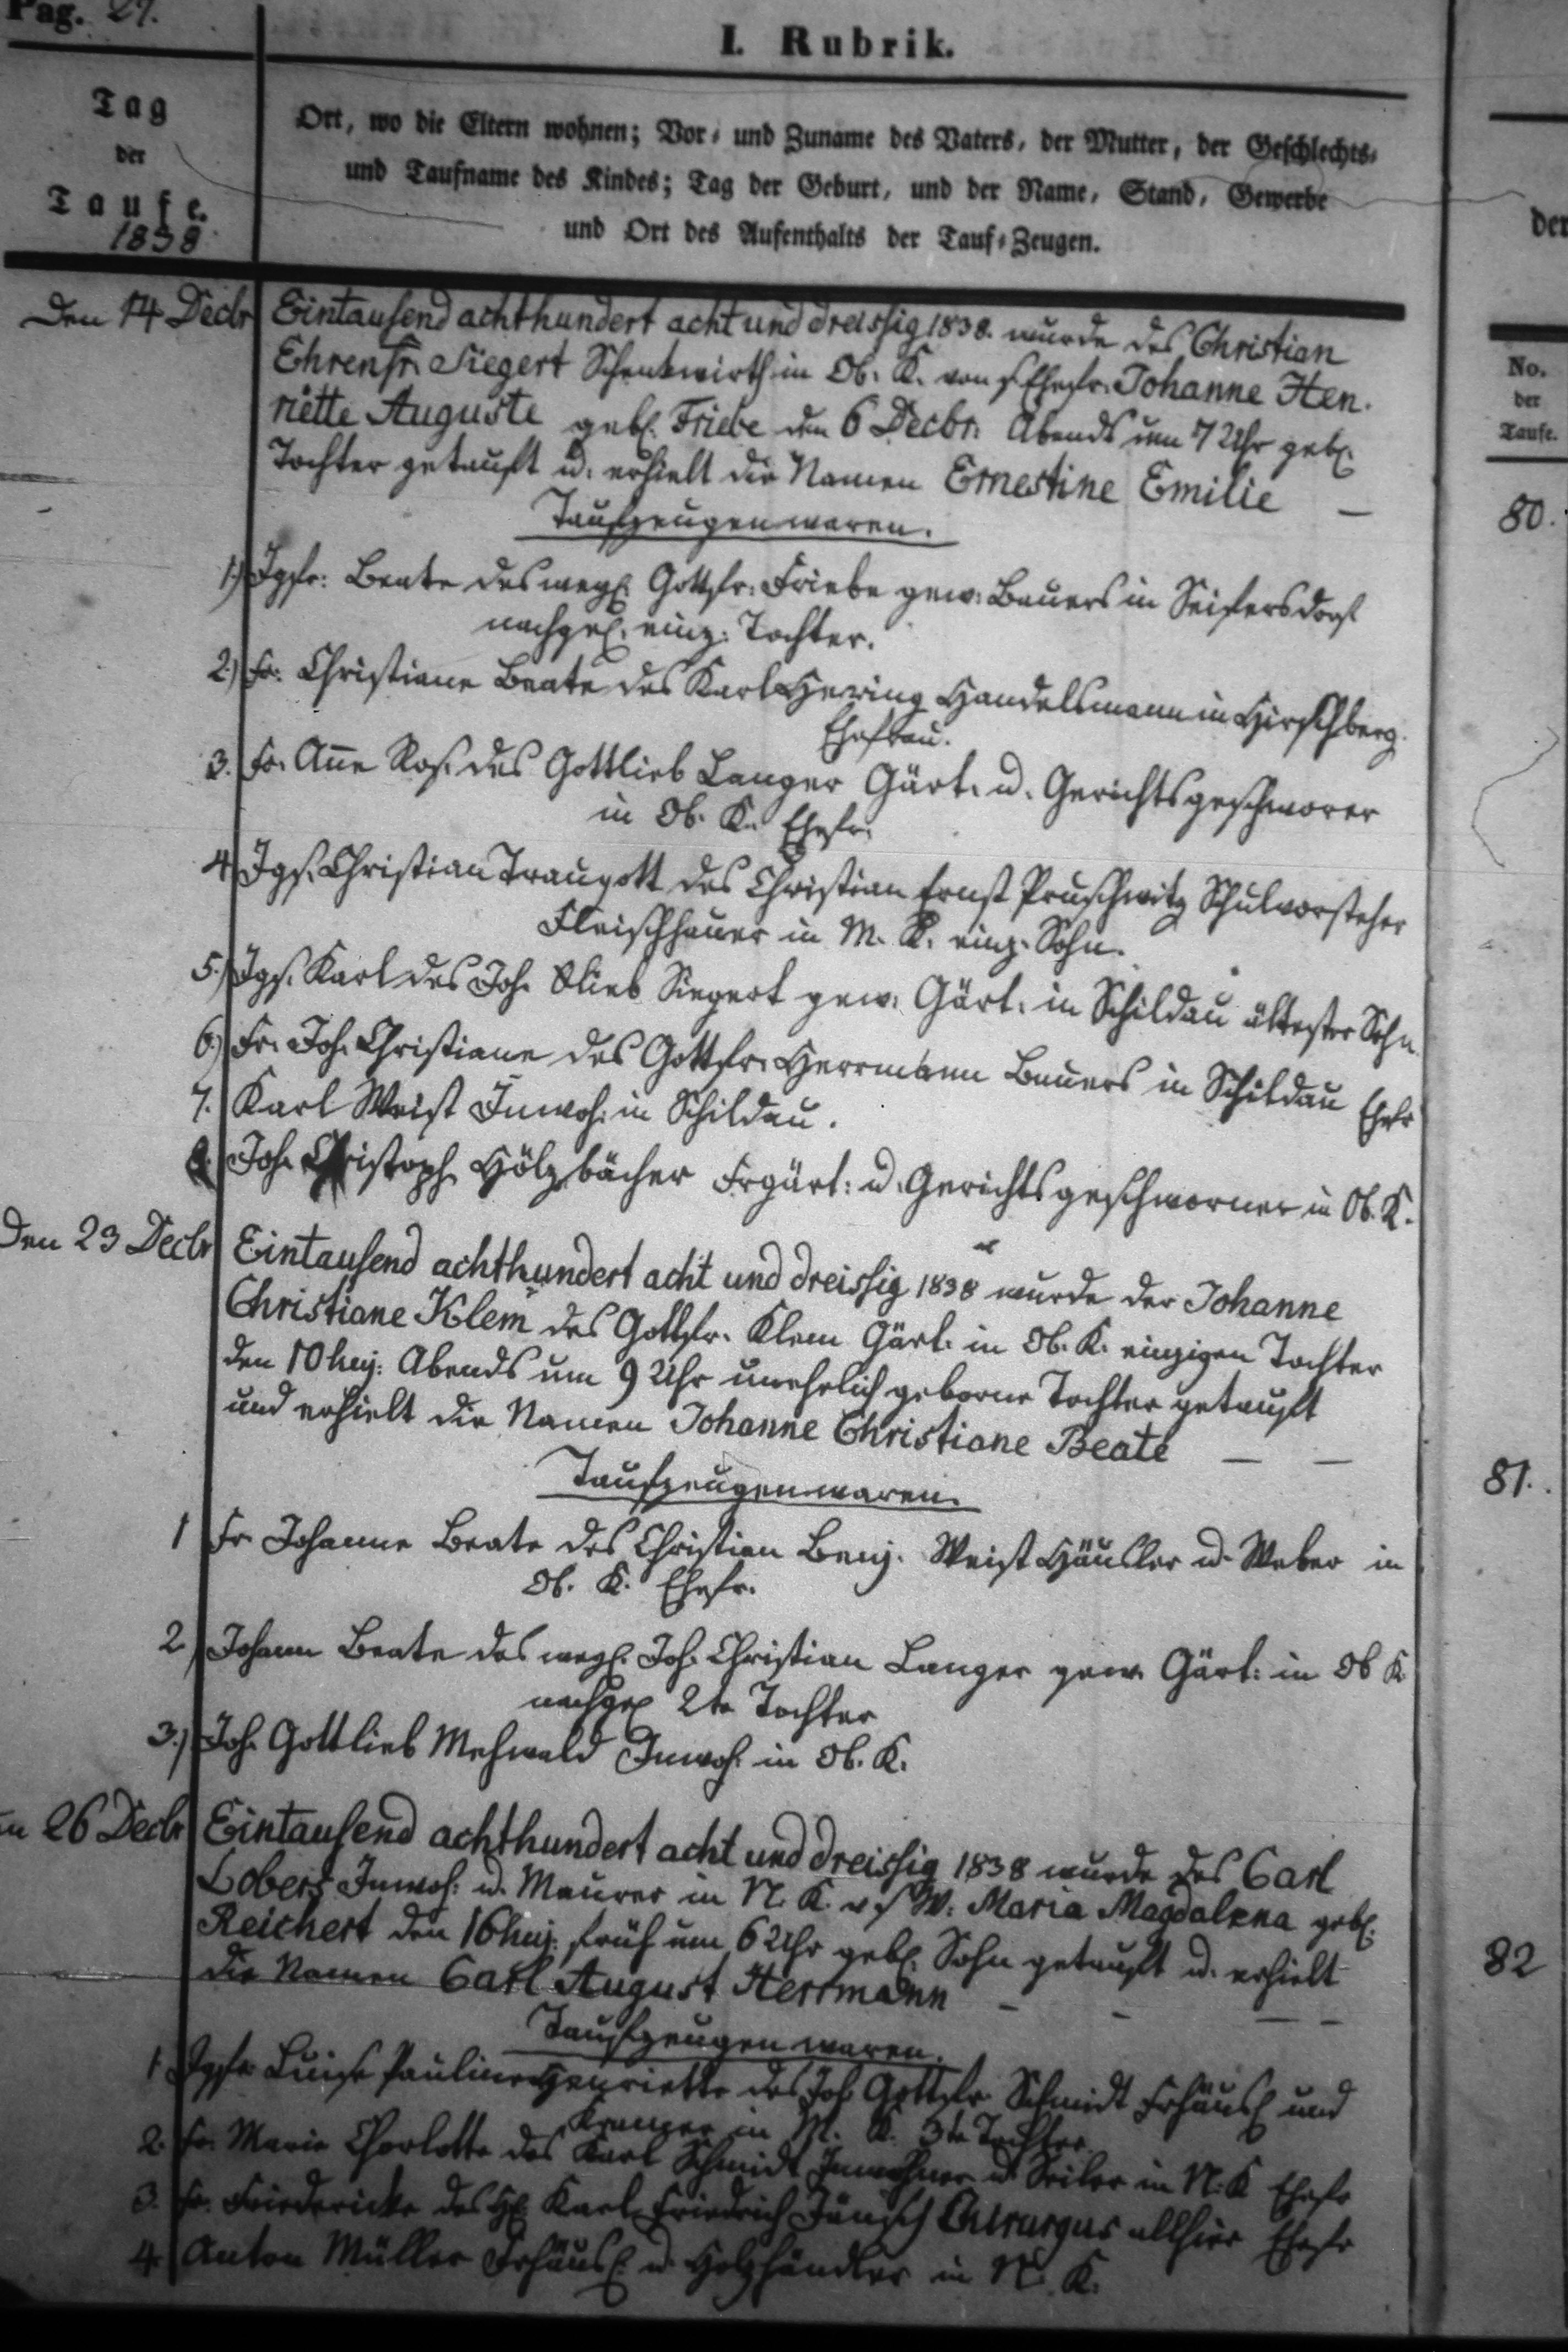 Pag. 27.
I. Rubrik.
Tag
der
Taufe.
1838
Ort, wo die Eltern wohnen; Vor- und Zuname des Vaters, der Mutter, der Geschlechts-
und Taufname des Kindes; Tag der Geburt, und der Name, Stand, Gewerbe
und Ort des Aufenthalts der Tauf-Zeugen.
der
No.
der
Taufe.
Den 14 Decbr Eintausend achthundert acht und dreissig 1838. wurde des Christian
Ehrenfr. Siegert Schenkwirth in Ob. K. von s. Ehefr. Johanne Hen.
riette Auguste geb. Friebe den 6 Decbr. Abends um 7 Uhr geb.
Tochter getauft u. erhielt die Namen Ernestine Emilie —
80.
Taufzeugen waren.
1.) Jgfr. Beate des weyl. Gottfr. Friebe gew. Bauers in Seifersdorf
nachgel. einz. Tochter.
2.) Fr. Christiane Beate des Karl Hering Handelsmann in Hirschberg
Ehefrau.
3. Fr. Ane Ros. des Gottlieb Langer Gärt. u. Gerichtsgeschworer
in Ob. K. Ehefr.
4. Jgs. Christian Traugott des Christian Ernst Pruschwitz Schulvorsteher
Fleischhauer in M. K. einz. Sohn.
5.) Jgs. Karl des Joh. Glieb Siegert gew. Gärt. in Schildau ältester Sohn
6.) Fr. Joh. Christiane des Gottfr. Herrmann Bauers in Schildau Ehefr
7. Karl Weist Inwoh. in Schildau.
8. Joh. Christoph Hölzbächer Frgärt. u. Gerichtsgeschworner in Ob. K.
Den 23 Decbr Eintausend achthundert acht und dreissig 1838 wurde der Johanne
Christiane Klem des Gottfr. Klem Gärt. in Ob. K. einzigen Tochter
den 10 huj. Abends um 9 Uhr unehelich geborne Tochter getauft
und erhielt die Namen Johanne Christiane Beate — —
81.
Taufzeugen waren.
1 Fr Johanne Beate des Christian Benj. Weist Häusler u. Weber in
Ob. K. Ehefr.
2) Johann Beate des weyl. Joh. Christian Langer gew. Gärt. in Ob K.
nachgel 2te Tochter
3.) Joh. Gottlieb Mehwald Inwoh. in Ob. K.
26 Decbr Eintausend achthundert acht und dreissig 1838 wurde des Carl
Lobers Inwoh. u. Maurer in N. K. v. s. W. Maria Magdalena geb.
Reichert den 16 huj. früh um 6 Uhr geb. Sohn getauft u. erhielt
die Namen Carl August Herrmann — — — —
82
Taufzeugen waren.
1. Jgfr Luise Pauline Henriette des Joh Gottfr Schmidt Frhäusl und
in M. K. 3te Tochter.
2. Fr. Marie Charlotte des Karl Schmidt Inwohner u. Seiler in N. K Ehefr
3. Fr. Friedericke des H. Karl Friedrich Jänsch Chirurgus allhier Ehefr
4. Anton Müller Frhäusl. u. Holzhändler in N. K.